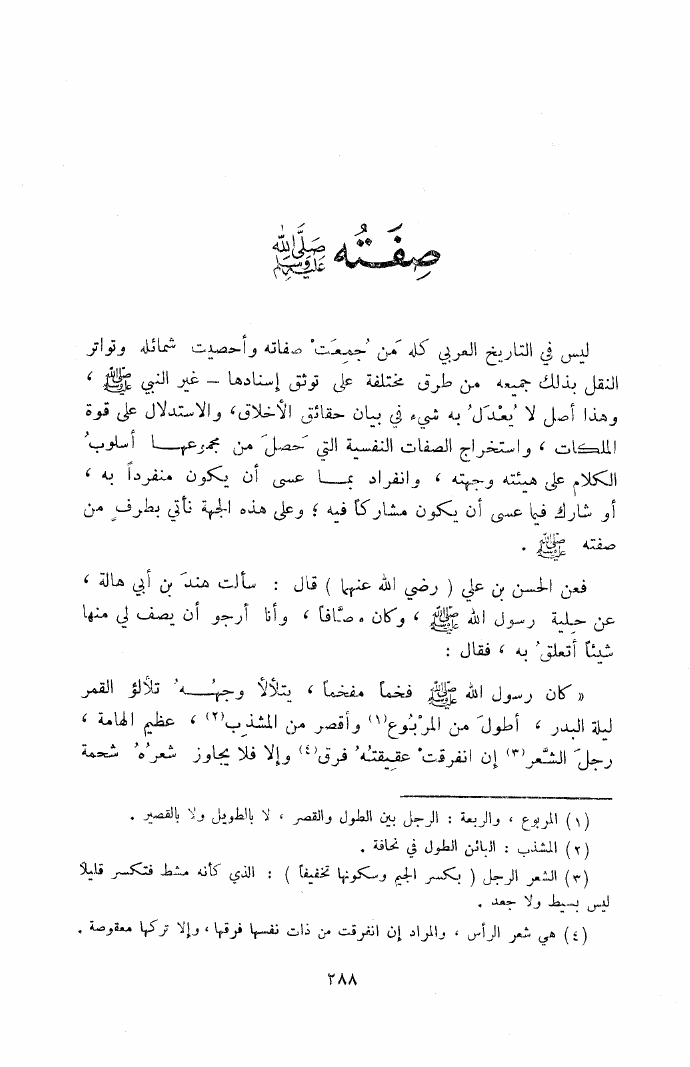 صِفَتُه ﷺ
ليس في التاريخ العربي كله مَن جُمِعَتْ صفاته وأحصيت شمائله وتواتر
النقل بذلك جميعه من طرق مختلفة على توثق إسنادها – غير النبي ﷺ ،
وهذا أصل لا يُعْدَلُ به شيء في بيان حقائق الأخلاق، والاستدلال على قوة
الملكات ، واستخراج الصفات النفسية التي حَصلَ من مجموعهـا أسلوبُ
الكلام على هيئته وجهته ، وانفراد بمـا عسى أن يكون منفرداً به ،
أو شارك فيما عسى أن يكون مشاركاً فيه ؛ وعلى هذه الجهة نأتي بطرفٍ من
صفته ﷺ .
فعن الحسن بن علي ( رضي الله عنهما ) قال : سألت هندَ بن أبي هالة ،
عن حِلية رسول الله ﷺ ، وكان وصَّافاً ، وأنا أرجو أن يصف لي منها
شيئاً أتعلقُ به ، فقال :
« كان رسول الله ﷺ فخماً مفخماً ، يتلألأ وجهُـهُ تلألؤ القمر
ليلة البدر ، أطولَ من المرْبُوع (١) وأقصر من المشذب (٢) ، عظيم الهامة ،
رجلَ الشَّعر (٣) إن انفرقتْ عقيقتهُ فرق (٤) وإلا فلا يجاوز شعرُهُ شحمة
(١) المربوع ، والربعة : الرجل بين الطول والقصر ، لا بالطويل ولا بالقصير .
(٢) المشذب : البائن الطول في نحافة .
(٣) الشعر الرجل ( بكسر الجيم وسكونها تخفيفاً ) : الذي كأنه مشط فتكسر قليلا
ليس بسيط ولا جعد .
(٤) هي شعر الرأس ، والمراد إن انفرقت من ذات نفسها فرقها ، وإلا تركها معقوصة .
٢٨٨